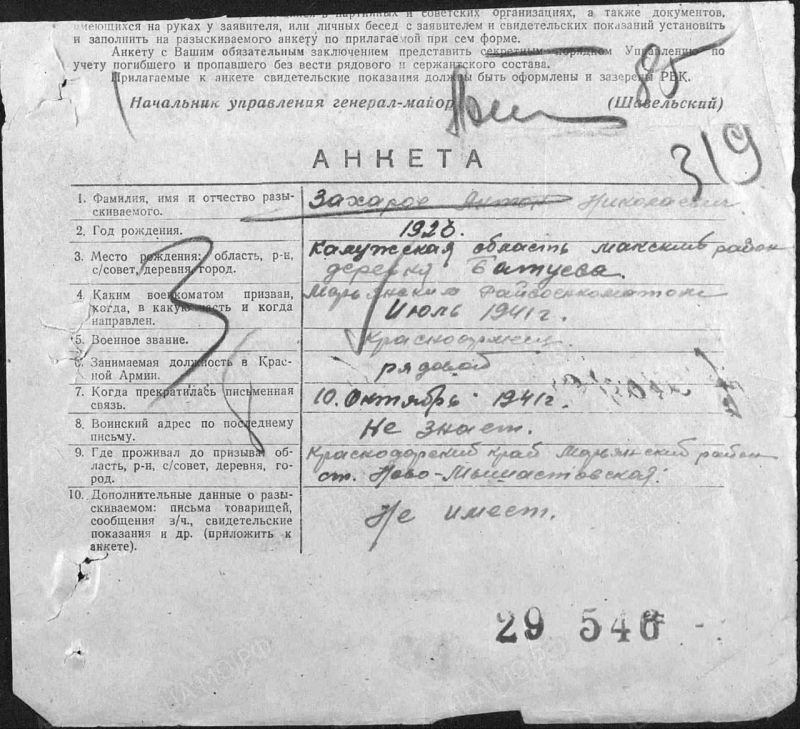 в партийных и советских организациях, а также документов,
имеющихся на руках у заявителя, или личных бесед с заявителем и свидетельских показаний установить
и заполнить на разыскиваемого анкету по прилагаемой при сем форме.
Анкету с Вашим обязательным заключением представить секретным порядком Управлению по
учету погибшего и пропавшего без вести рядового и сержантского состава.
Прилагаемые к анкете свидетельские показания должны быть оформлены и заверены РВК.
85
Начальник управления генерал-майор (Шавельский)
319
АНКЕТА
1. Фамилия, имя и отчество разыскиваемого. Захаров Антон Николаевич
2. Год рождения.
3. Место рождения: область, р-н, с/совет, деревня, город. Калужская область район
деревня Батуева.
4. Каким военкоматом призван, когда, в какую часть и когда направлен. Марьянским Райвоенкоматом
Июль 1941г.
5. Военное звание. Красноармеец.
6. Занимаемая должность в Красной Армии. рядовой
7. Когда прекратилась письменная связь. 10. Октябрь 1941г.
8. Воинский адрес по последнему письму. Не знает.
9. Где проживал до призыва: область, р-н, с/совет, деревня, город. Краснодарский край Марьянский район
ст. Ново-Мышастовская.
10. Дополнительные данные о разыскиваемом: письма товарищей, сообщения з/ч., свидетельские показания и др. (приложить к анкете). Не имеет.
29 546
ЦАМО РФ